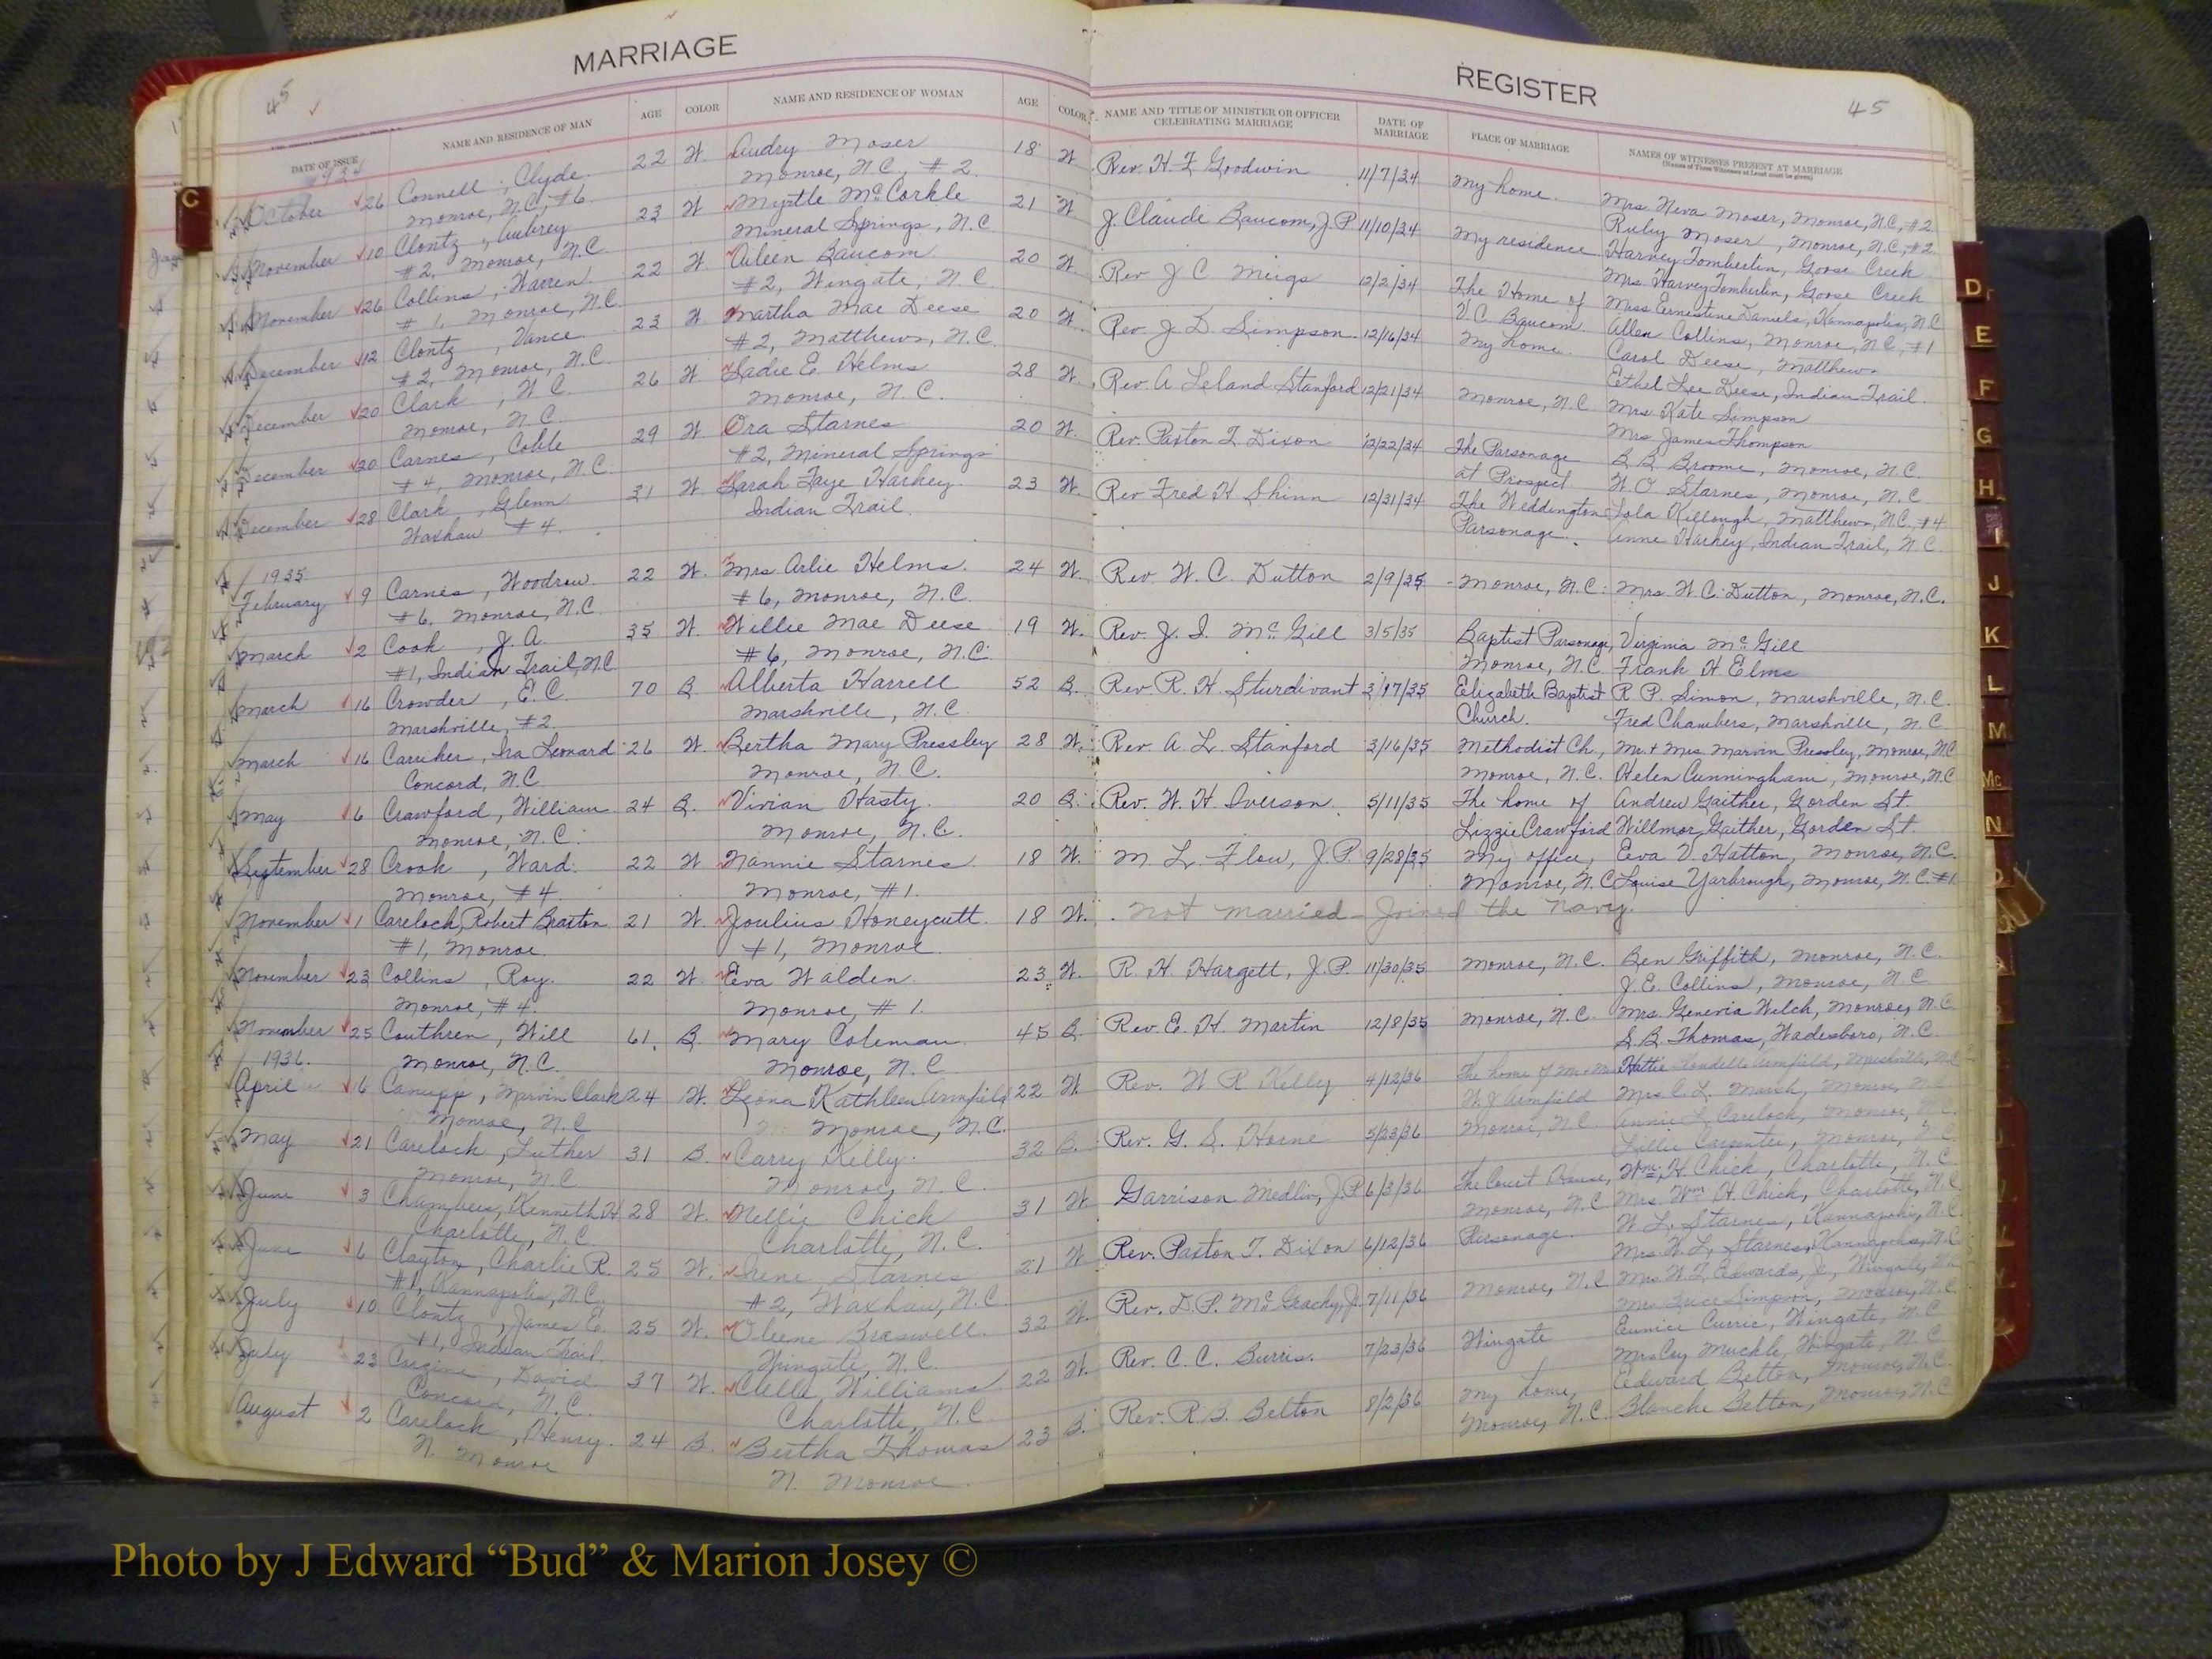 MARRIAGE
REGISTER
45
45
DATE OF ISSUE
NAME AND RESIDENCE OF MAN
AGE
COLOR
NAME AND RESIDENCE OF WOMAN
AGE
COLOR
NAME AND TITLE OF MINISTER OR OFFICER
CELEBRATING MARRIAGE
DATE OF
MARRIAGE
PLACE OF MARRIAGE
NAMES OF WITNESSES PRESENT AT MARRIAGE
(Names of Three Witnesses at Least must be given)
1934
October 26 Connell, Clyde 22 W. Audry Moser 18 W Rev. H. F. Goodwin 11/7/34 My home. Mrs. Neva Moser, Monroe, N.C., #2
Monroe, N.C., #6 Monroe, N.C. #2 Ruby Moser, Monroe, N.C., #2
November 10 Clontz, Aubrey 23 W Myrtle McCorkle 21 W J. Claude Baucom, J.P. 11/10/34 My residence Harvey Tomberlin, Goose Creek
#2, Monroe, N.C. Mineral Springs, N.C. Mrs. Harvey Tomberlin, Goose Creek
November 26 Collins, Warren 22 W. Aileen Baucom 20 W Rev J. C. Meigs 12/2/34 The Home of Miss Ernestine Daniels, Kannapolis, N.C.
#1, Monroe, N.C. #2, Wingate, N.C. V.C. Baucom Allen Collins, Monroe, N.C., #1
December 12 Clontz, Vance 23 W Martha Mae Deese 20 W. Rev. J. D. Simpson 12/16/34 My home. Carol Deese, Matthews
#2, Monroe, N.C. #2, Matthews, N.C. Ethel Lee Deese, Indian Trail.
December 20 Clark, N.C. 26 W Sadie E. Helms 28 W. Rev. A. Leland Stanford 12/21/34 Monroe, N.C. Mrs. Kate Simpson
Monroe, N.C. Monroe, N.C. Mrs. James Thompson
December 20 Carnes, Coble 29 W. Ora Starnes 20 W. Rev. Paxton T. Dixon 12/22/34 The Parsonage B. B. Broome, Monroe, N.C.
#4, Monroe, N.C. #2, Mineral Springs at Prospect W. O. Starnes, Monroe, N.C.
December 28 Clark, Glenn 31 W Sarah Faye Harkey 23 W. Rev Fred H Shinn 12/31/34 The Weddington Lola Killough, Matthews, N.C., #4
Waxhaw #4. Indian Trail. Parsonage. Anne Harkey, Indian Trail, N.C.
1935
February 9 Carnes, Woodrow 22 W. Mrs. Arlie Helms. 24 W. Rev. W. C. Dutton 2/9/35 Monroe, N.C. Mrs. W. C. Dutton, Monroe, N.C.
#6, Monroe, N.C. #6, Monroe, N.C.
March 2 Cook, J. A. 35 W. Willie Mae Deese 19 W. Rev. J. I. McGill 3/5/35 Baptist Parsonage, Virginia McGill
#1, Indian Trail, N.C. #6, Monroe, N.C. Monroe, N.C. Frank H Elms
March 16 Crowder, E. C. 70 B. Alberta Harrell 52 B. Rev. R. H. Sturdivant 3/17/35 Elizabeth Baptist R. P. Simon, Marshville, N.C.
Marshville, #2 Marshville, N.C. Church. Fred Chambers, Marshville, N.C.
March 16 Carriker, Ira Leonard 26 W. Bertha Mary Pressley 28 W. Rev. A. L. Stanford 3/16/35 Methodist Ch., Mr. + Mrs. Marvin Pressley, Monroe, N.C.
Concord, N.C. Monroe, N.C. Monroe, N.C. Helen Cunningham, Monroe, N.C.
May 6 Crawford, William 24 B. Vivian Hasty. 20 B. Rev. W. H. Iverson. 5/11/35 The home of Andrew Gaither, Gorden St.
Monroe, N.C. Monroe, N.C. Lizzie Crawford Willmor Gaither, Gorden St.
September 28 Crook, Ward. 22 W Nannie Starnes 18 W. M. L. Flow, J.P. 9/28/35 My office, Eva V. Hatton, Monroe, N.C.
Monroe, #4 Monroe, #1. Monroe, N.C. Louise Yarbrough, Monroe, N.C. #1
November 1 Carelock, Robert Braxton 21 W. Joulius Honeycutt. 18 W. Not married - Joined the Navy.
#1, Monroe #1, Monroe
November 23 Collins, Roy. 22 W. Eva Walden. 23 W. R. H. Hargett, J.P. 11/30/35 Monroe, N.C. Ben Griffith, Monroe, N.C.
Monroe, #4. Monroe, #1. J. E. Collins, Monroe, N.C.
November 25 Couthren, Will 61 B. Mary Coleman 45 B. Rev. E. H. Martin 12/8/35 Monroe, N.C. Mrs. Genevia Welch, Monroe, N.C.
Monroe, N.C. Monroe, N.C. S. B. Thomas, Wadesboro, N.C.
1936.
April 6 Canupp, Marvin Clark 24 W. Leona Kathleen Armfield 22 W. Rev. W R Kelly 4/12/36 The home of Mr + Mrs Hattie Armfield, Marshville, N.C.
Monroe, N.C. Monroe, N.C. W. J. Armfield Mrs. C. L. March, Monroe, N.C.
May 21 Carelock, Luther 31 B. Carry Kelly. 32 B. Rev. G. S. Horne 5/23/36 Monroe, N.C. Annie L. Carelock, Monroe, N.C.
Monroe, N.C. Monroe, N.C. Lillie Carpenter, Monroe, N.C.
June 3 Chambers, Kenneth H 28 W. Nellie Chick 31 W. Garrison Medlin, J.P. 6/3/36 The Court House, Wm. H. Chick, Charlotte, N.C.
Charlotte, N.C. Charlotte, N.C. Monroe, N.C. Mrs. Wm. H. Chick, Charlotte, N.C.
June 6 Clayton, Charlie R. 25 W. Irene Starnes 21 W Rev. Paxton T. Dixon 6/12/36 Parsonage. W. L. Starnes, Kannapolis, N.C.
#1, Kannapolis, N.C. #2, Waxhaw, N.C. Mrs. W. L. Starnes, Kannapolis, N.C.
July 10 Clontz, James E. 25 W. Oleene Braswell. 32 W. Rev. D. P. McGeachy, Jr. 7/11/36 Monroe, N.C. Mrs. W. T. Edwards, Jr., Wingate, N.C.
#1, Indian Trail. Wingate, N.C. Simpson, Monroe, N.C.
July 23 David 37 W. Clelle Williams 22 W. Rev. C. C. Burris. 7/23/36 Wingate Eunice Currie, Wingate, N.C.
Concord, N.C. Charlotte, N.C. Muckle, Wingate, N.C.
August 2 Carelock, Henry. 24 B. Bertha Thomas 23 B. Rev. R. B. Belton 8/2/36 My home, Edward Belton, Monroe, N.C.
N. Monroe N. Monroe. Monroe, N.C. Blanche Belton, Monroe, N.C.
C
D
E
F
G
H
I
J
K
L
M
Mc
N
O
Photo by J Edward “Bud” & Marion Josey ©